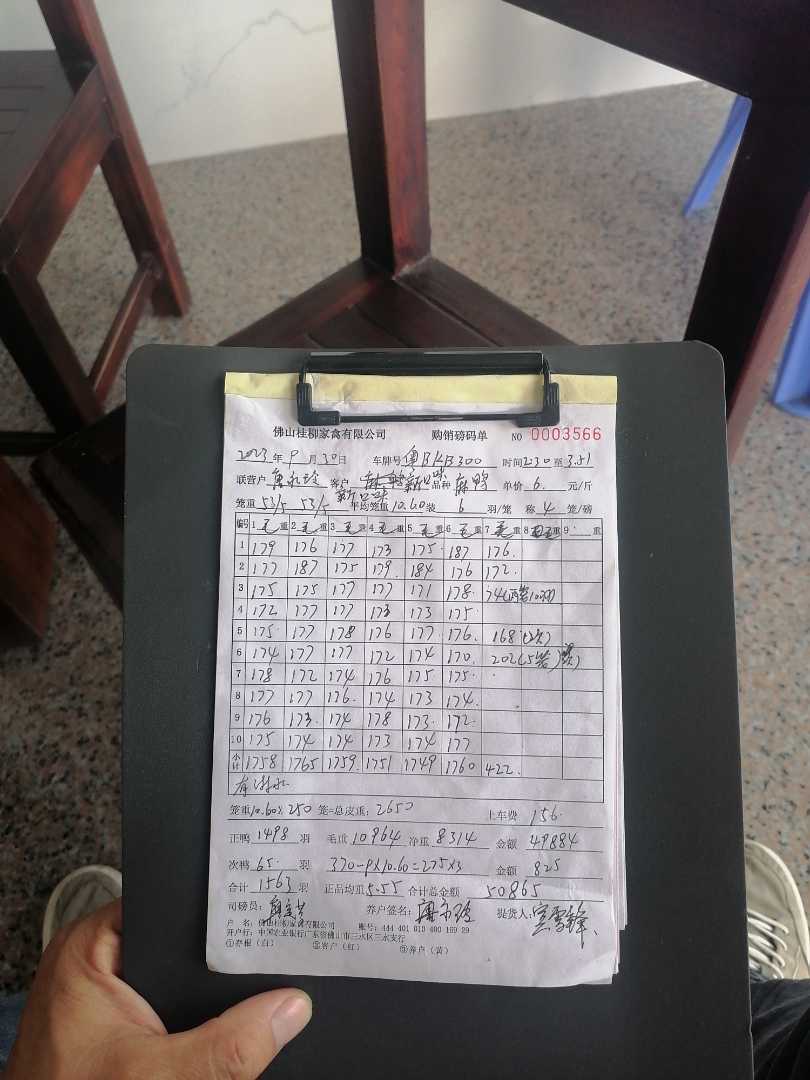 佛山桂柳家禽有限公司 购销磅码单 NO 0003566
2023年9月30日 车牌号 粤BKB300 时间 2:30 至 3:51
联营户 客户 新口味 品种 麻鸭 单价 6. 元/斤
新口味
笼重 53/5 53/5 平均笼重 10.60 装 6 羽/笼 称 4 笼/磅
编号 1 毛重 2 毛重 3 毛重 4 毛重 5 毛重 6 毛重 7 毛重 8 重 9 重
1 179 176 177 173 175. 187 176.
2 177 187 175 179. 184 176 172.
3 175 175 177 177 171 178. 74
4 172 177 177 173 173 175.
5 175. 177 178 176 177. 176. 168
6 174 177 177. 172 174 170. 202
7 178 172 174 176 175 175.
8 177 177 176. 174 173 174.
9 176 173. 174 178 173. 172.
10 175 174 174 173 174 177
小计 1758 1765 1759. 1751 1749 1760 422.
笼重 10.60 × 250 笼=总皮重: 2650 上车费 156.
正鸭 1498 羽 毛重 10964 净重 8314 金额 49884
次鸭 65. 羽 370-9×10.60=275×3 金额 825
合计 1563 羽 正品均重 5.55 合计总金额 50865
司磅员: 养户签名: 提货人:
户 名: 佛山桂柳家禽有限公司 账号: 444 401 010 400 169 29
开户行: 中国农业银行广东省佛山市三水区三水支行
①存根(白) ②客户(红) ③养户(黄)